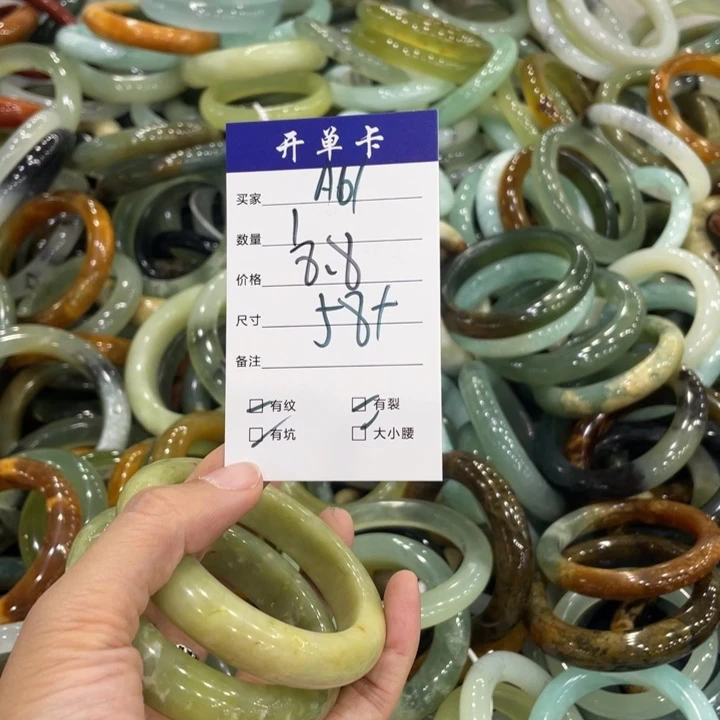 开单卡
买家 A61
数量 1
价格 8.8
尺寸 58+
备注
有纹 有裂
有坑 大小腰